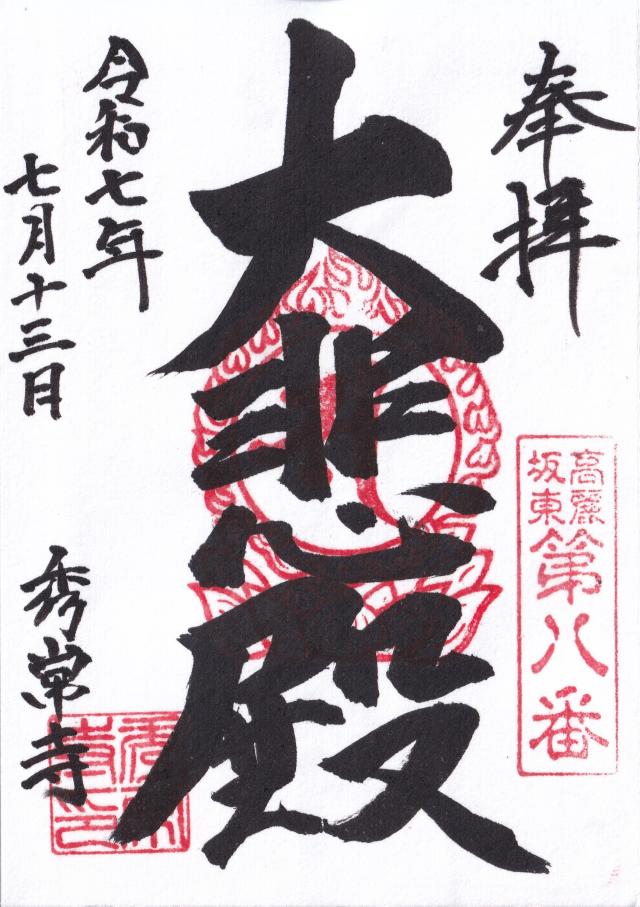 奉拝
高麗
坂東
第八番
大悲殿
令和七年
七月十三日
秀常寺